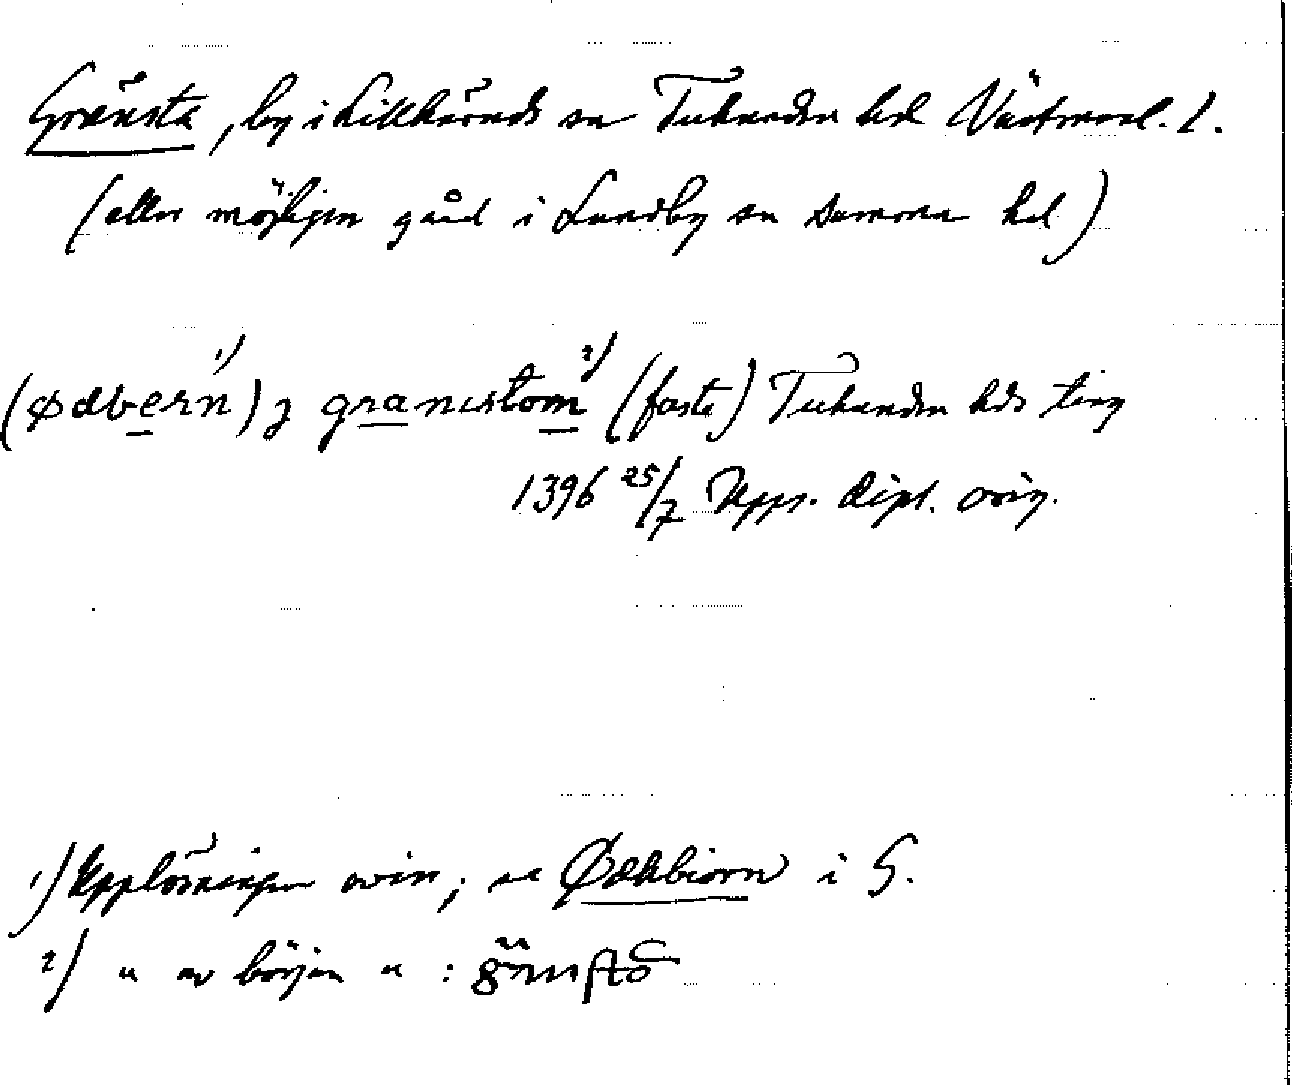 Gränsta, by i Lillhärads sn Tuhundra hd Västmanl. l.
(eller möjligen gård i Lundby sn samma hd)
(Ødbern¹⁾) j granistom²⁾ (faste) Tuhundra hds ting
1396 25/7 Upps. dipl. orig.
1) Upplösningen oviss; se Ødhbiorn i S.
2) u av början u :